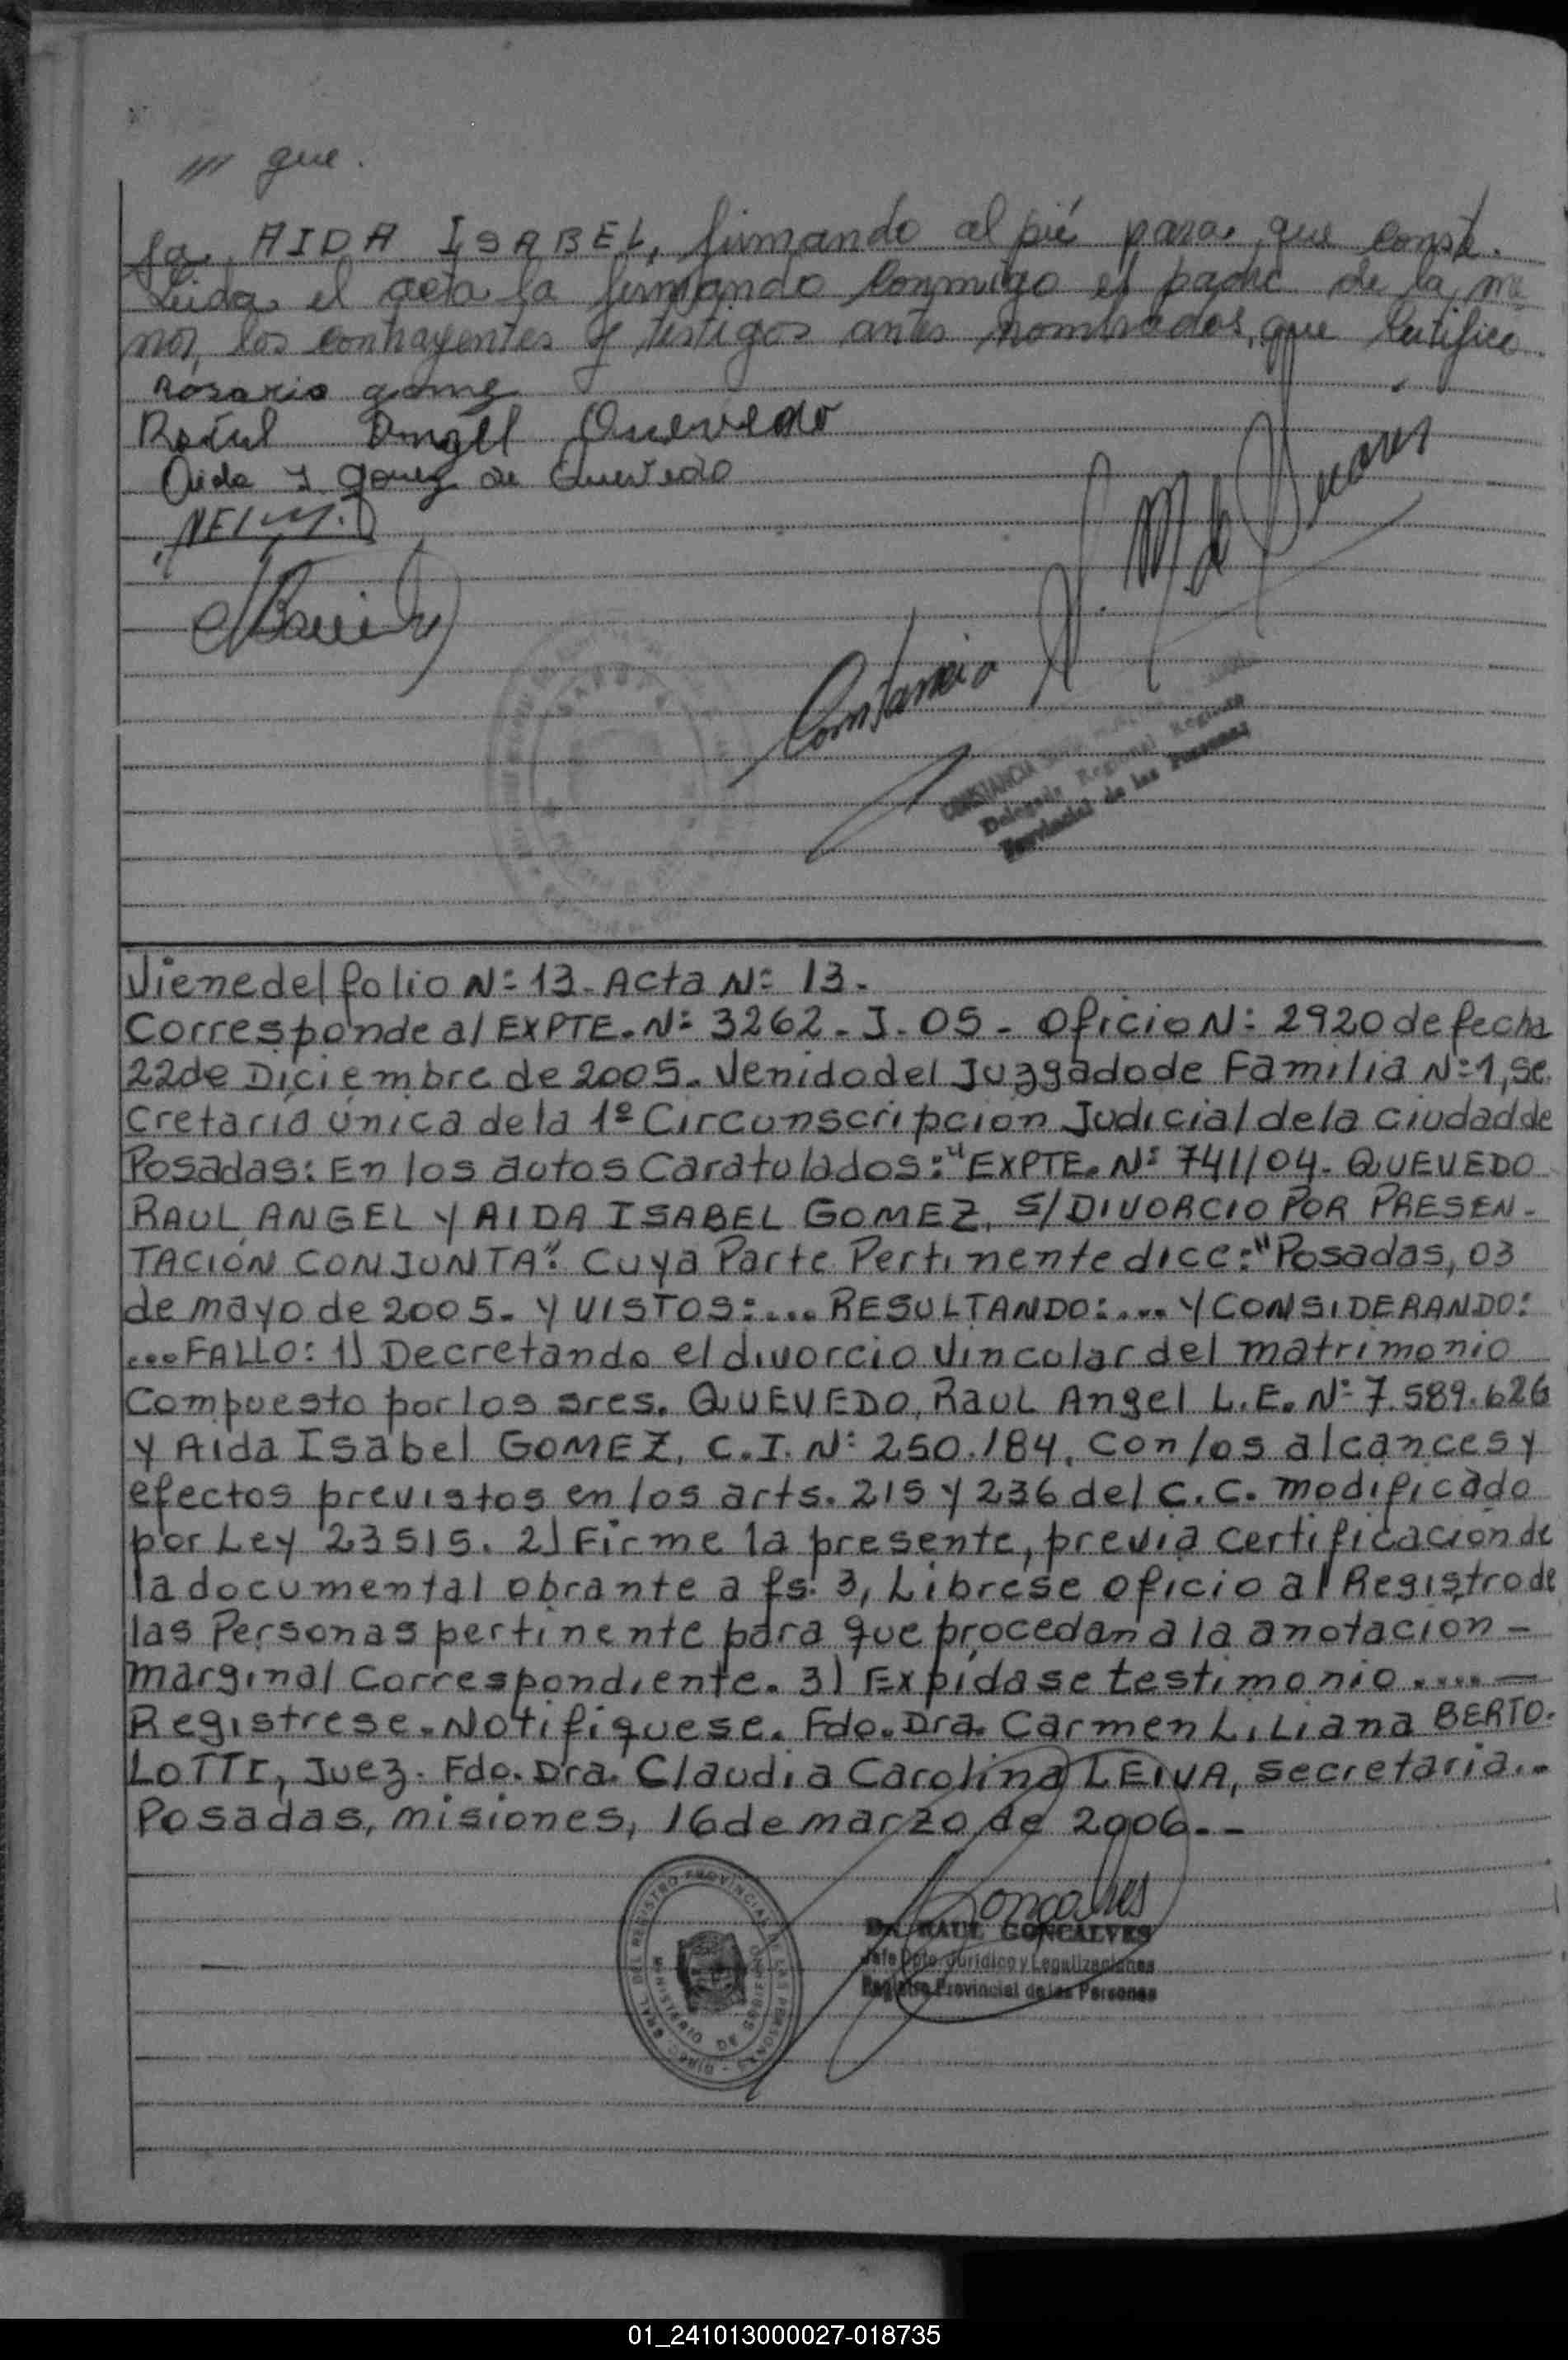 /// que.
ja AIDA ISABEL, firmando al pié para que conste.
Leida el acta la firmando conmigo el padre de la me
nor, los contrayentes y testigos antes nombrados, que certifico
Rosario gomez
Raúl Angel Quevedo
Aida I gomez de Quevedo
Constancia
CONSTANCIA
Delegada Regional Registro
Provincial de las Personas
Viene del folio N: 13. Acta N: 13.
Corresponde al EXPTE. N: 3262 - J - 05 - Oficio N: 2920 de fecha
22 de Diciembre de 2005. Venido del Juzgado de Familia N: 1, Se
cretaria única de la 1º Circunscripcion Judicial de la ciudad de
Posadas: En los autos Caratulados: "EXPTE. N: 741/04. QUEVEDO
RAUL ANGEL y AIDA ISABEL GOMEZ, S/DIVORCIO POR PRESEN-
TACIÓN CONJUNTA". Cuya Parte Pertinente dice: "Posadas, 03
de mayo de 2005. Y VISTOS:... RESULTANDO:... Y CONSIDERANDO:
...FALLO: 1) Decretando el divorcio vincular del matrimonio
Compuesto por los sres. QUEVEDO, Raul Angel L.E. N: 7.589.626
y Aida Isabel GOMEZ, C.I. N: 250.184, con los alcances y
efectos previstos en los arts. 215 y 236 del C.C. modificado
por Ley 23515. 2) Firme la presente, previa certificación de
la documental obrante a fs. 3, Librese oficio al Registro de
las Personas pertinente para que procedan a la anotación -
marginal Correspondiente. 3) Expídase testimonio..... —
Registrese. Notifiquese. Fdo. Dra. Carmen Liliana BERTO-
LOTTI, Juez. Fdo. Dra. Claudia Carolina LEIVA, secretaria..
Posadas, misiones, 16 de marzo de 2006.--
Goncalves
Dr. RAUL GONCALVES
Jefe Dpto. Jurídico y Legalizaciones
Registro Provincial de las Personas
01_241013000027-018735